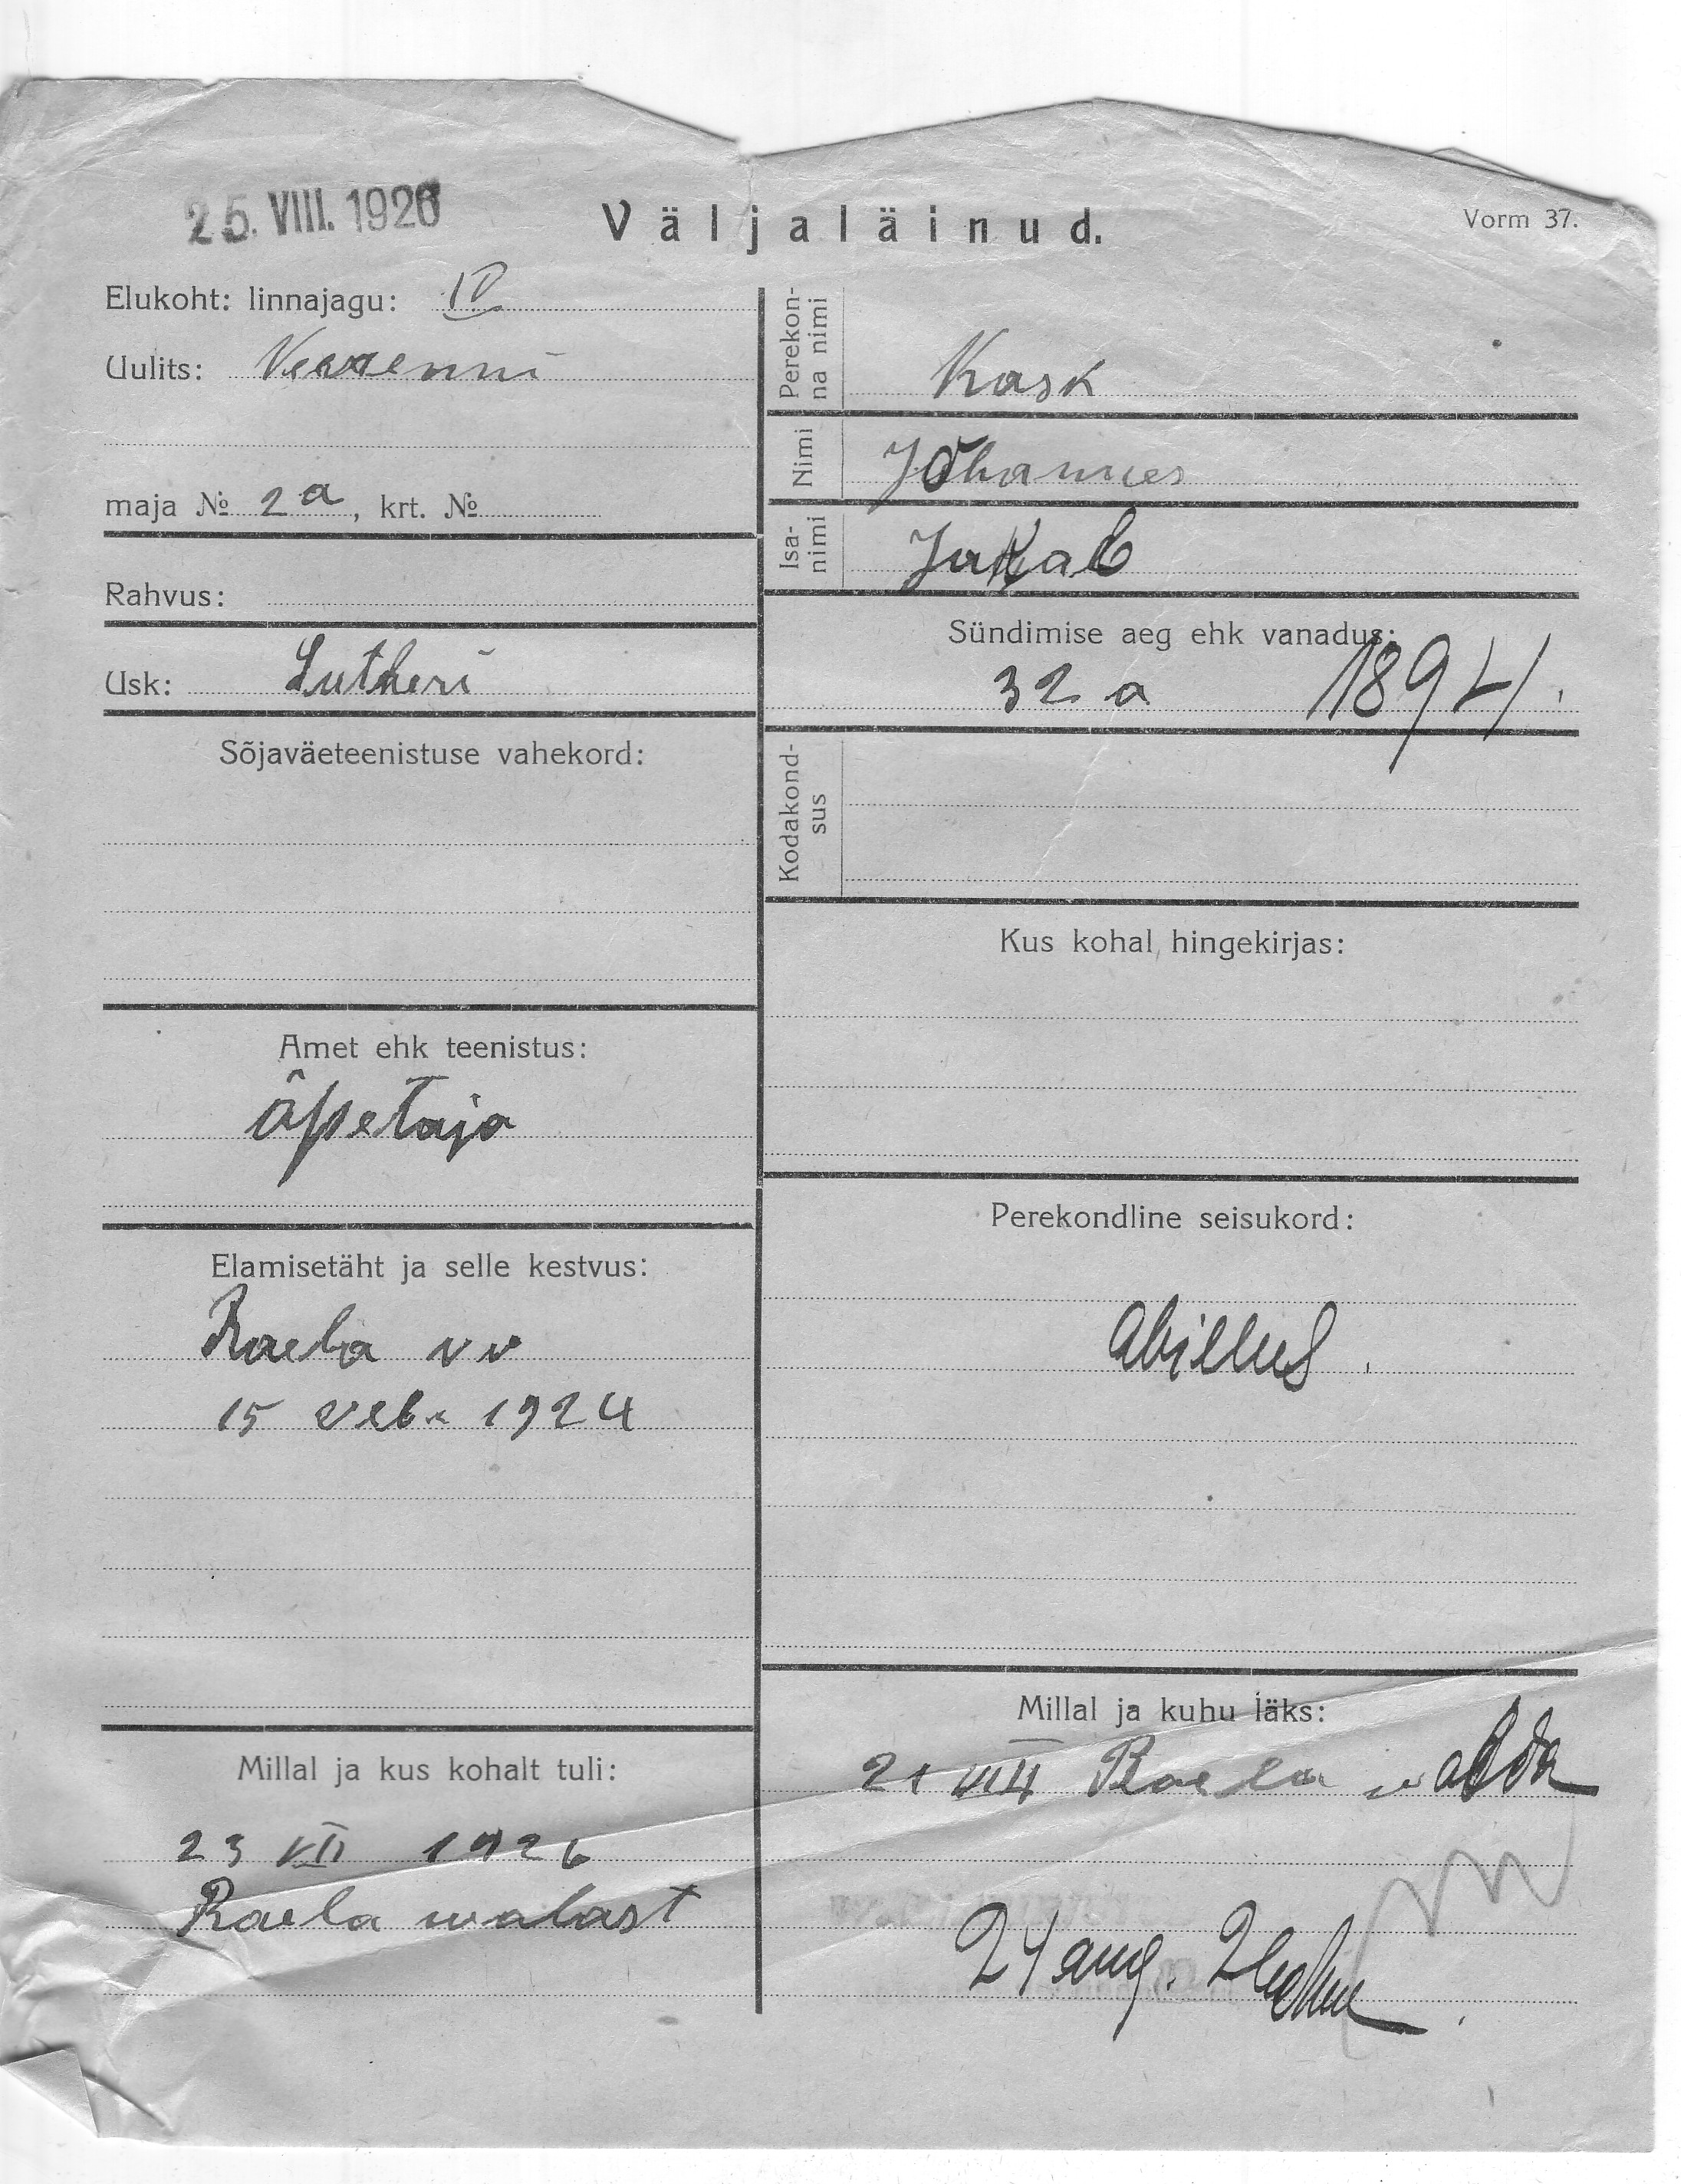 25. VIII. 1926
Väljaläinud.
Vorm 37.
Elukoht: linnajagu: IV
Uulits: Veerenni
maja № 2a, krt. №
Rahvus:
Usk: Lutheri
Sõjaväeteenistuse vahekord:
Amet ehk teenistus:
õpetaja
Elamisetäht ja selle kestvus:
Raela vv
15 veb. 1924
Millal ja kus kohalt tuli:
23 VII 1926
Raela walast
Perekonna nimi
Kask
Nimi
Johannes
Isanimi
Jakab
Sündimise aeg ehk vanadus:
32 a 1894.
Kodakondsus
Kus kohal hingekirjas:
Perekondline seisukord:
abielus.
Millal ja kuhu läks:
21 VIII Raela walda
24 aug.